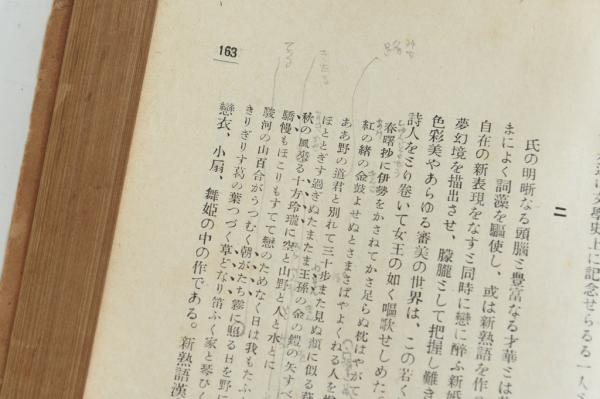 に文學史上に記念せらるる一人を
二
氏の明晰なる頭腦ミ豐富なる才華ミは
まによく詞藻を驅使し、或は新熟語を作
自在の新表現をなすミ同時に戀に醉ふ新婚
夢幻境を描出させ、朦朧ミして把握し難き
色彩美やあらゆる審美の世界は、この若く
詩人をミり卷いて女王の如く嘔歌せしめた
春曙抄に伊勢をかさねてかさ足らぬ枕はやがて
紅の緒の金鼓よせぬとさまさばやよくねる人を
ああ野の道君と別れて三十步また見ぬ顏に似る
ほととぎす過ぎぬたまたま王孫の金の鎧の矢すべ
秋の風春る十方玲瓏に空と山野と人と水とに
驕慢もほこりもすてて戀のためなく日は我もたふ
駿河の山百合がうつむく朝がたち霧に照る日を野に
きりぎりす葛の葉つづく草どなり笛ふく家と琴ひく
戀衣、小扇、舞姬の中の作である。新熟語漢
163